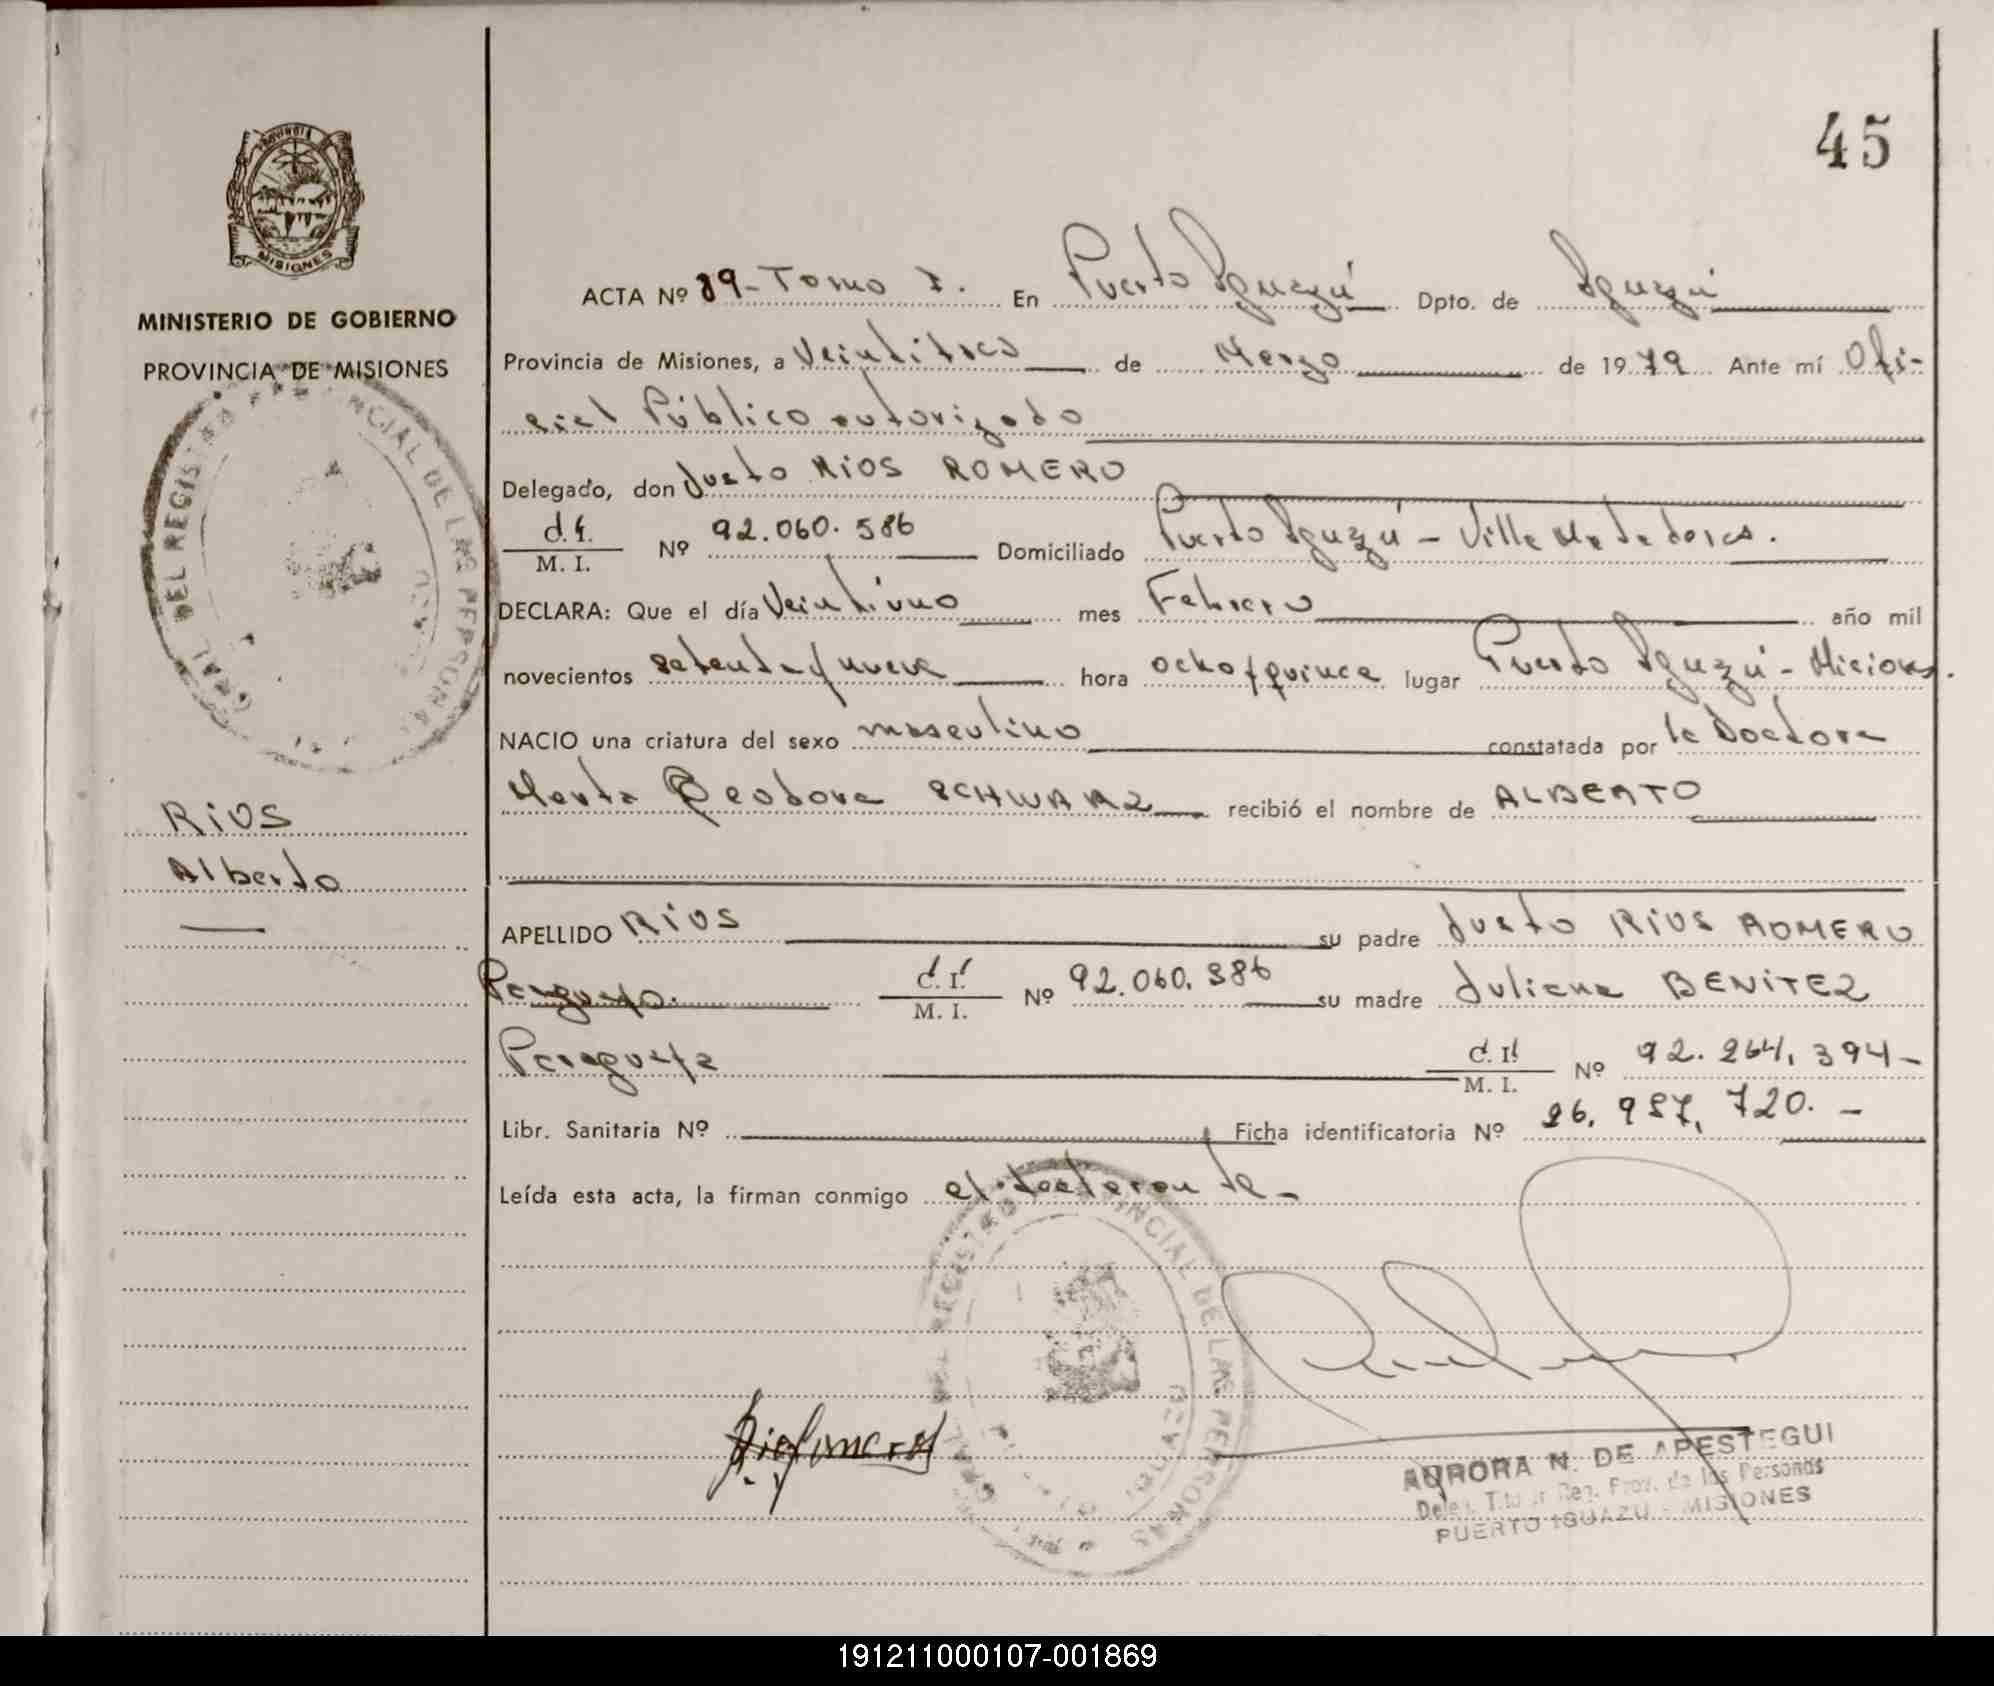 45
PROVINCIA
MISIONES
MINISTERIO DE GOBIERNO
PROVINCIA DE MISIONES
GRAL DEL REGISTRO PROVINCIAL DE LAS PERSONAS
RIOS
Alberto
ACTA Nº 89 - Tomo I. En Puerto Iguazú Dpto. de Iguazú
Provincia de Misiones, a Veintitres de Marzo de 1979 Ante mí Ofi-
cial Público autorizado
Delegado, don Justo RIOS ROMERO
d.i.
M. I. Nº 92.060.586 Domiciliado Puerto Iguazú - Villa
DECLARA: Que el día Veintiuno mes Febrero año mil
novecientos setenta y nueve hora ocho y quince lugar Puerto Iguazú - Misiones.
NACIO una criatura del sexo masculino constatada por la Doctora
Marta Teodora SCHWARZ recibió el nombre de ALBERTO
APELLIDO RIOS su padre Justo RIOS ROMERO
Paraguayo. C. I.
M. I. Nº 92.060.586 su madre Juliana BENITEZ
Paraguaya C. I.
M. I. Nº 92.264.394 -
Libr. Sanitaria Nº Ficha identificatoria Nº 26.957.720. -
Leída esta acta, la firman conmigo el declarante -
REGISTRO PROVINCIAL DE LAS PERSONAS
AURORA N. DE APESTEGUI
Deleg. Titular Reg. Prov. de las Personas
PUERTO IGUAZU - MISIONES
191211000107-001869